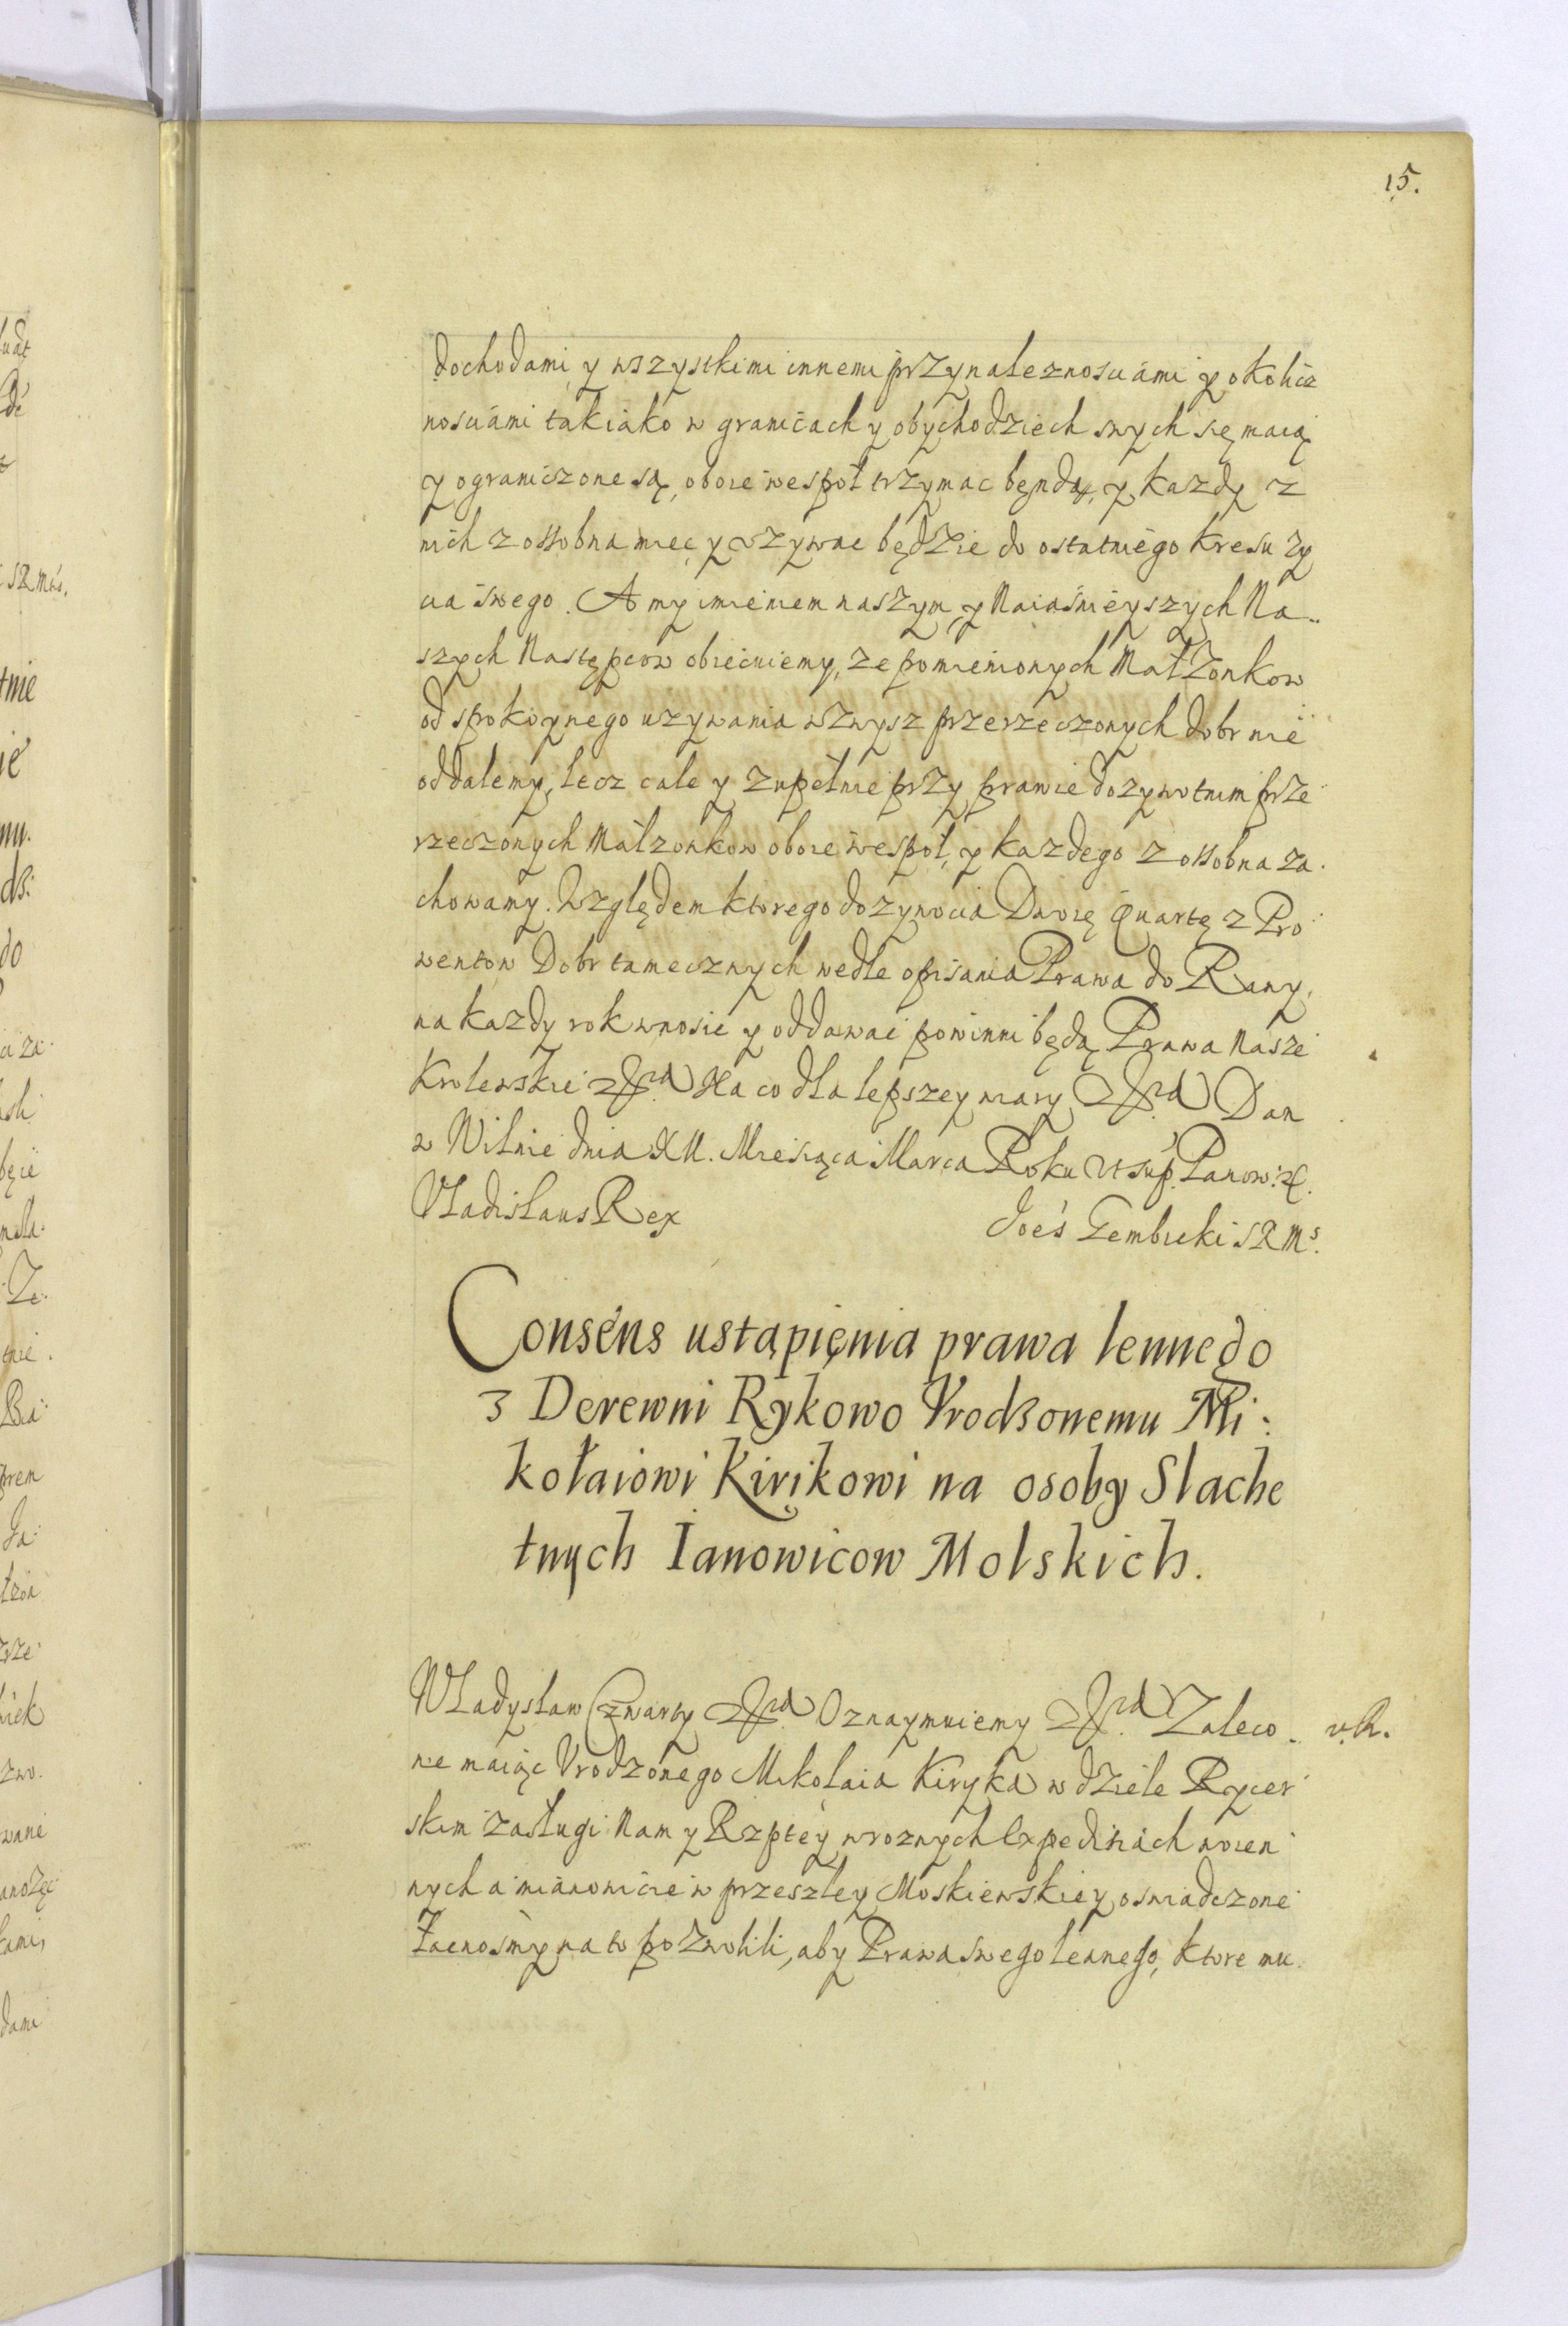 15.
dochodami y wszystkimi innemi przynaleznosciami y okolicz
nosciami tak iako w granicach y obychodziech swych się maią
y ograniczone są, oboie wespoł trzymac będą, y kazdy z
nich z ossobna miec y vzywac będzie do ostatniego kresu zy
cia swego. A my imieniem naszym y Naiaśnieyszych Na..
szych Następcow obiecuiemy, ze pomienionych Małzonkow
od spokoynego uzywania wzwysz przerzeczonych dobr nie
oddalemy, lecz cale y zupełnie przy prawie dozywotnim prze
rzeczonych Małzonkow oboie wespoł, y kazdego z ossobna za.
chowamy. Względem ktorego dozywocia Dwoię Quartę z Pro
wentow Dobr tamecznych wedle opisania Prawa do Rawy,
na kazdy rok wnosic y oddawac powinni będą Prawa Nasze
Krolewskie Na co dla lepszey wiary Dan
w Wilnie dnia XII. Miesiąca Marca Roku Vt sup. Panow. &c.
Vladislaus Rex Joes Gembicki SRMs.
Consens ustąpienia prawa lennego
z Derewni Rykowo Vrodzonemu Mi:
kołaiowi Kirikowi na osoby Slache
tnych Ianowicow Molskich.
Władysław Czwarty Oznaymuiemy Zaleco. v.R.
ne maiąc Vrodzonego Mikołaia Kiryka w dziele Rycer
skim zasługi Nam y Rzptey w roznych Expeditiach woien
nych a mianowicie w przeszłey Moskiewskiey oswiadczone
Łacnosmy na to pozwolili, aby Prawa swego leanego, ktore mu